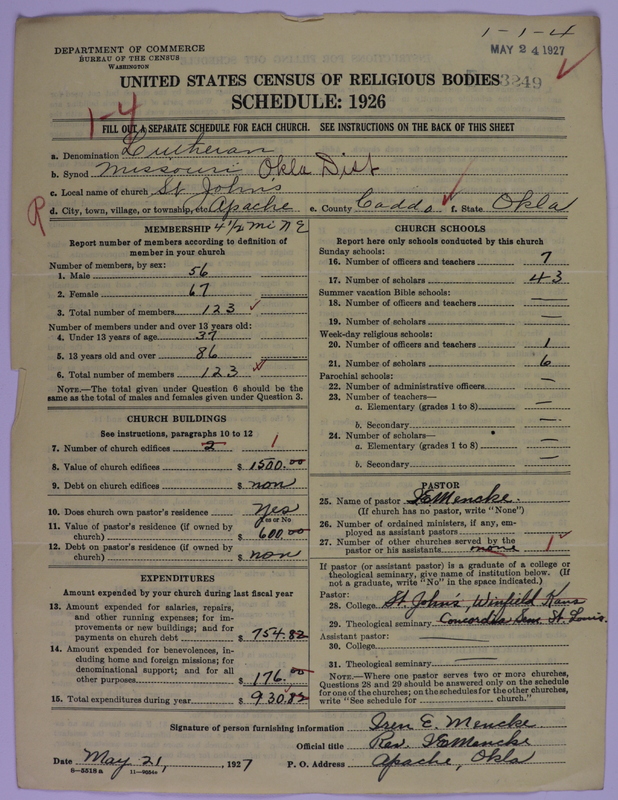 1-1-4
DEPARTMENT OF COMMERCE
BUREAU OF THE CENSUS
WASHINGTON
MAY 24 1927
3249
UNITED STATES CENSUS OF RELIGIOUS BODIES
SCHEDULE: 1926
1-4
FILL OUT A SEPARATE SCHEDULE FOR EACH CHURCH. SEE INSTRUCTIONS ON THE BACK OF THIS SHEET
a. Denomination Lutheran
b. Synod Missouri Okla Dist
c. Local name of church St John's
R d. City, town, village, or township, etc. Apache e. County Caddo f. State Okla
MEMBERSHIP 4 1/2 Mi N E
Report number of members according to definition of
member in your church
Number of members, by sex:
1. Male 56
2. Female 67
3. Total number of members 123
Number of members under and over 13 years old:
4. Under 13 years of age 37
5. 13 years old and over 86
6. Total number of members 123
NOTE.—The total given under Question 6 should be the
same as the total of males and females given under Question 3.
CHURCH BUILDINGS
See instructions, paragraphs 10 to 12
7. Number of church edifices 2 1
8. Value of church edifices $ 1500.00
9. Debt on church edifices $ non
10. Does church own pastor's residence yes
Yes or No
11. Value of pastor's residence (if owned by
church) $ 600.00
12. Debt on pastor's residence (if owned by
church) $ non
EXPENDITURES
Amount expended by your church during last fiscal year
13. Amount expended for salaries, repairs,
and other running expenses; for im-
provements or new buildings; and for
payments on church debt $ 754.82
14. Amount expended for benevolences, in-
cluding home and foreign missions; for
denominational support; and for all
other purposes $ 176.00
15. Total expenditures during year $ 930.82
CHURCH SCHOOLS
Report here only schools conducted by this church
Sunday schools:
16. Number of officers and teachers 7
17. Number of scholars 43
Summer vacation Bible schools:
18. Number of officers and teachers —
19. Number of scholars —
Week-day religious schools:
20. Number of officers and teachers 1
21. Number of scholars 6
Parochial schools:
22. Number of administrative officers —
23. Number of teachers—
a. Elementary (grades 1 to 8) —
b. Secondary —
24. Number of scholars—
a. Elementary (grades 1 to 8) —
b. Secondary —
PASTOR
25. Name of pastor Mencke.
(If church has no pastor, write "None")
26. Number of ordained ministers, if any, em-
ployed as assistant pastors
27. Number of other churches served by the
pastor or his assistants none 1
If pastor (or assistant pastor) is a graduate of a college or
theological seminary, give name of institution below. (If
not a graduate, write "No" in the space indicated.)
Pastor:
28. College St. John's, Winfield Kans
29. Theological seminary Concordia Sem. St. Louis.
Assistant pastor:
30. College —
31. Theological seminary —
NOTE.—Where one pastor serves two or more churches,
Questions 28 and 29 should be answered only on the schedule
for one of the churches; on the schedules for the other churches,
write "See schedule for church."
Signature of person furnishing information E. Mencke
Official title Rev. Mencke
Date May 21, 1927 P. O. Address Apache, Okla
8—5518a